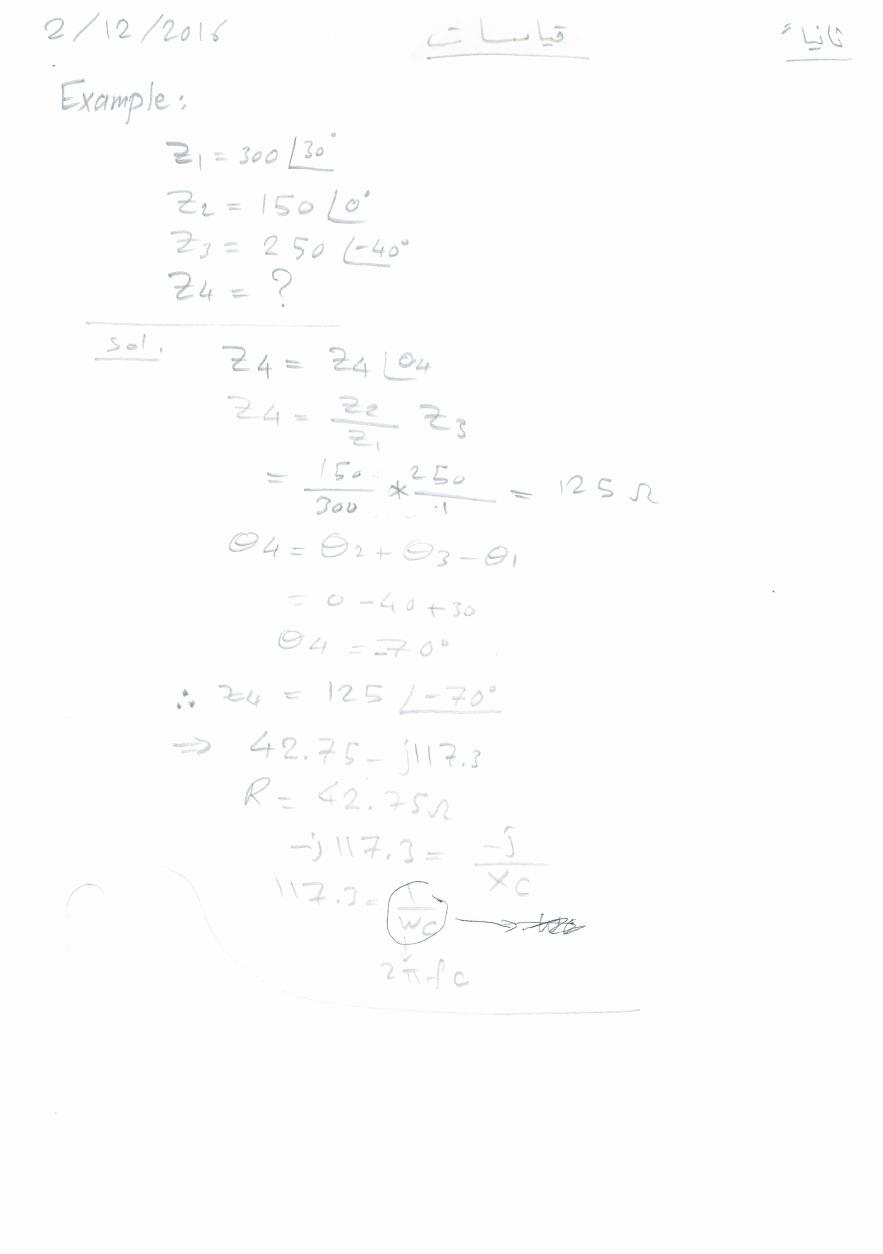 2/12/2016 قياسات ثانياً
Example:
Z1 = 300 ∠30°
Z2 = 150 ∠0°
Z3 = 250 ∠-40°
Z4 = ?
Sol.
Z4 = Z4 ∠θ4
Z4 = Z2/Z1 Z3
= 150/300 * 250/1 = 125 Ω
θ4 = θ2 + θ3 - θ1
= 0 - 40 + 30
θ4 = -70°
∴ Z4 = 125 ∠-70°
⇒ 42.75 - j117.3
R = 42.75Ω
-j 117.3 = -j/XC
117.3 = 1/WC →
2πfC